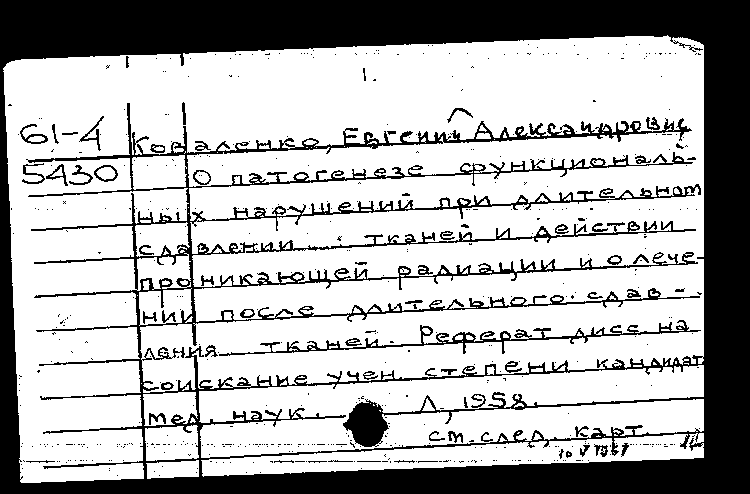 1.
61-4
5430
Коваленко, Евгений Александрович
О патогенезе функциональ-
ных нарушений при длительном
сдавлении тканей и действии
проникающей радиации и о лече-
нии после длительного сдав-
ления тканей. Реферат дисс. на
соискание учен. степени кандидата
мед. наук. Л, 1958.
ст. след. карт.